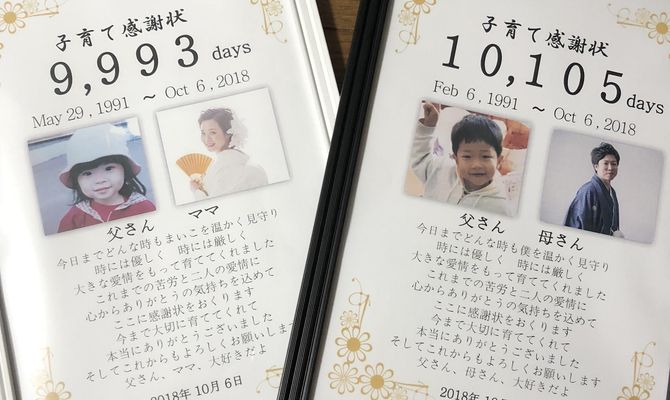 子育て感謝状
9,993 days
May 29 , 1991 ～ Oct 6 , 2018
父さん ママ
今日までどんな時もまいこを温かく見守り
時には優しく 時には厳しく
大きな愛情をもって育ててくれました
これまでの苦労と二人の愛情に
心からありがとうの気持ちを込めて
ここに感謝状をおくります
今まで大切に育ててくれて
本当にありがとうございました
そしてこれからもよろしくお願いします
父さん、ママ、大好きだよ
2018年 10月 6日
子育て感謝状
10,105 days
Feb 6 , 1991 ～ Oct 6 , 2018
父さん 母さん
今日までどんな時も僕を温かく見守り
時には優しく 時には厳しく
大きな愛情をもって育ててくれました
これまでの苦労と二人の愛情に
心からありがとうの気持ちを込めて
ここに感謝状をおくります
今まで大切に育ててくれて
本当にありがとうございました
そしてこれからもよろしくお願いします
父さん、母さん、大好きだよ
2018年